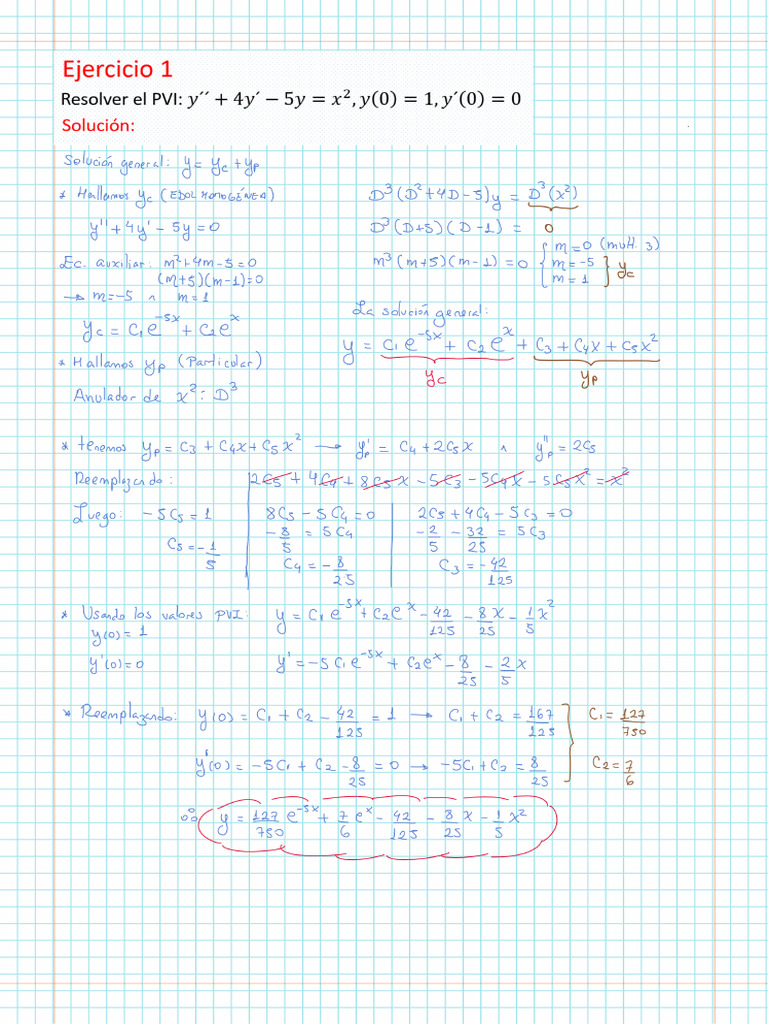 Ejercicio 1
Resolver el PVI: y´´ + 4y´ − 5y = x², y(0) = 1, y´(0) = 0
Solución:
Solución general: y = yc + yp
* Hallamos yc (EDOL HOMOGÉNEA)
y'' + 4y' − 5y = 0
Ec. auxiliar: m² + 4m − 5 = 0
(m+5)(m−1) = 0
→ m = −5 ∧ m = 1
yc = C1e^(−5x) + C2e^x
* Hallamos yp (Particular)
Anulador de x²: D³
D³(D² + 4D − 5)y = D³(x²)
D³(D+5)(D−1) = 0
m³(m+5)(m−1) = 0 { m = 0 (mult. 3)
m = −5
m = 1 } yc
La solución general:
y = C1e^(−5x) + C2e^x + C3 + C4x + C5x²
yc yp
* tenemos yp = C3 + C4x + C5x² → yp' = C4 + 2C5x ∧ yp'' = 2C5
Reemplazando: 2C5 + 4C4 + 8C5x − 5C3 − 5C4x − 5C5x² = x²
Luego: −5C5 = 1 | 8C5 − 5C4 = 0 | 2C5 + 4C4 − 5C3 = 0
C5 = −1/5 | −8/5 = 5C4 | −2/5 − 32/25 = 5C3
C4 = −8/25 | C3 = −42/125
* Usando los valores PVI: y = C1e^(−5x) + C2e^x − 42/125 − 8/25 x − 1/5 x²
y(0) = 1
y'(0) = 0 y' = −5C1e^(−5x) + C2e^x − 8/25 − 2/5 x
* Reemplazando: y(0) = C1 + C2 − 42/125 = 1 → C1 + C2 = 167/125 } C1 = 127/750
y'(0) = −5C1 + C2 − 8/25 = 0 → −5C1 + C2 = 8/25 C2 = 7/6
∴ y = 127/750 e^(−5x) + 7/6 e^x − 42/125 − 8/25 x − 1/5 x²